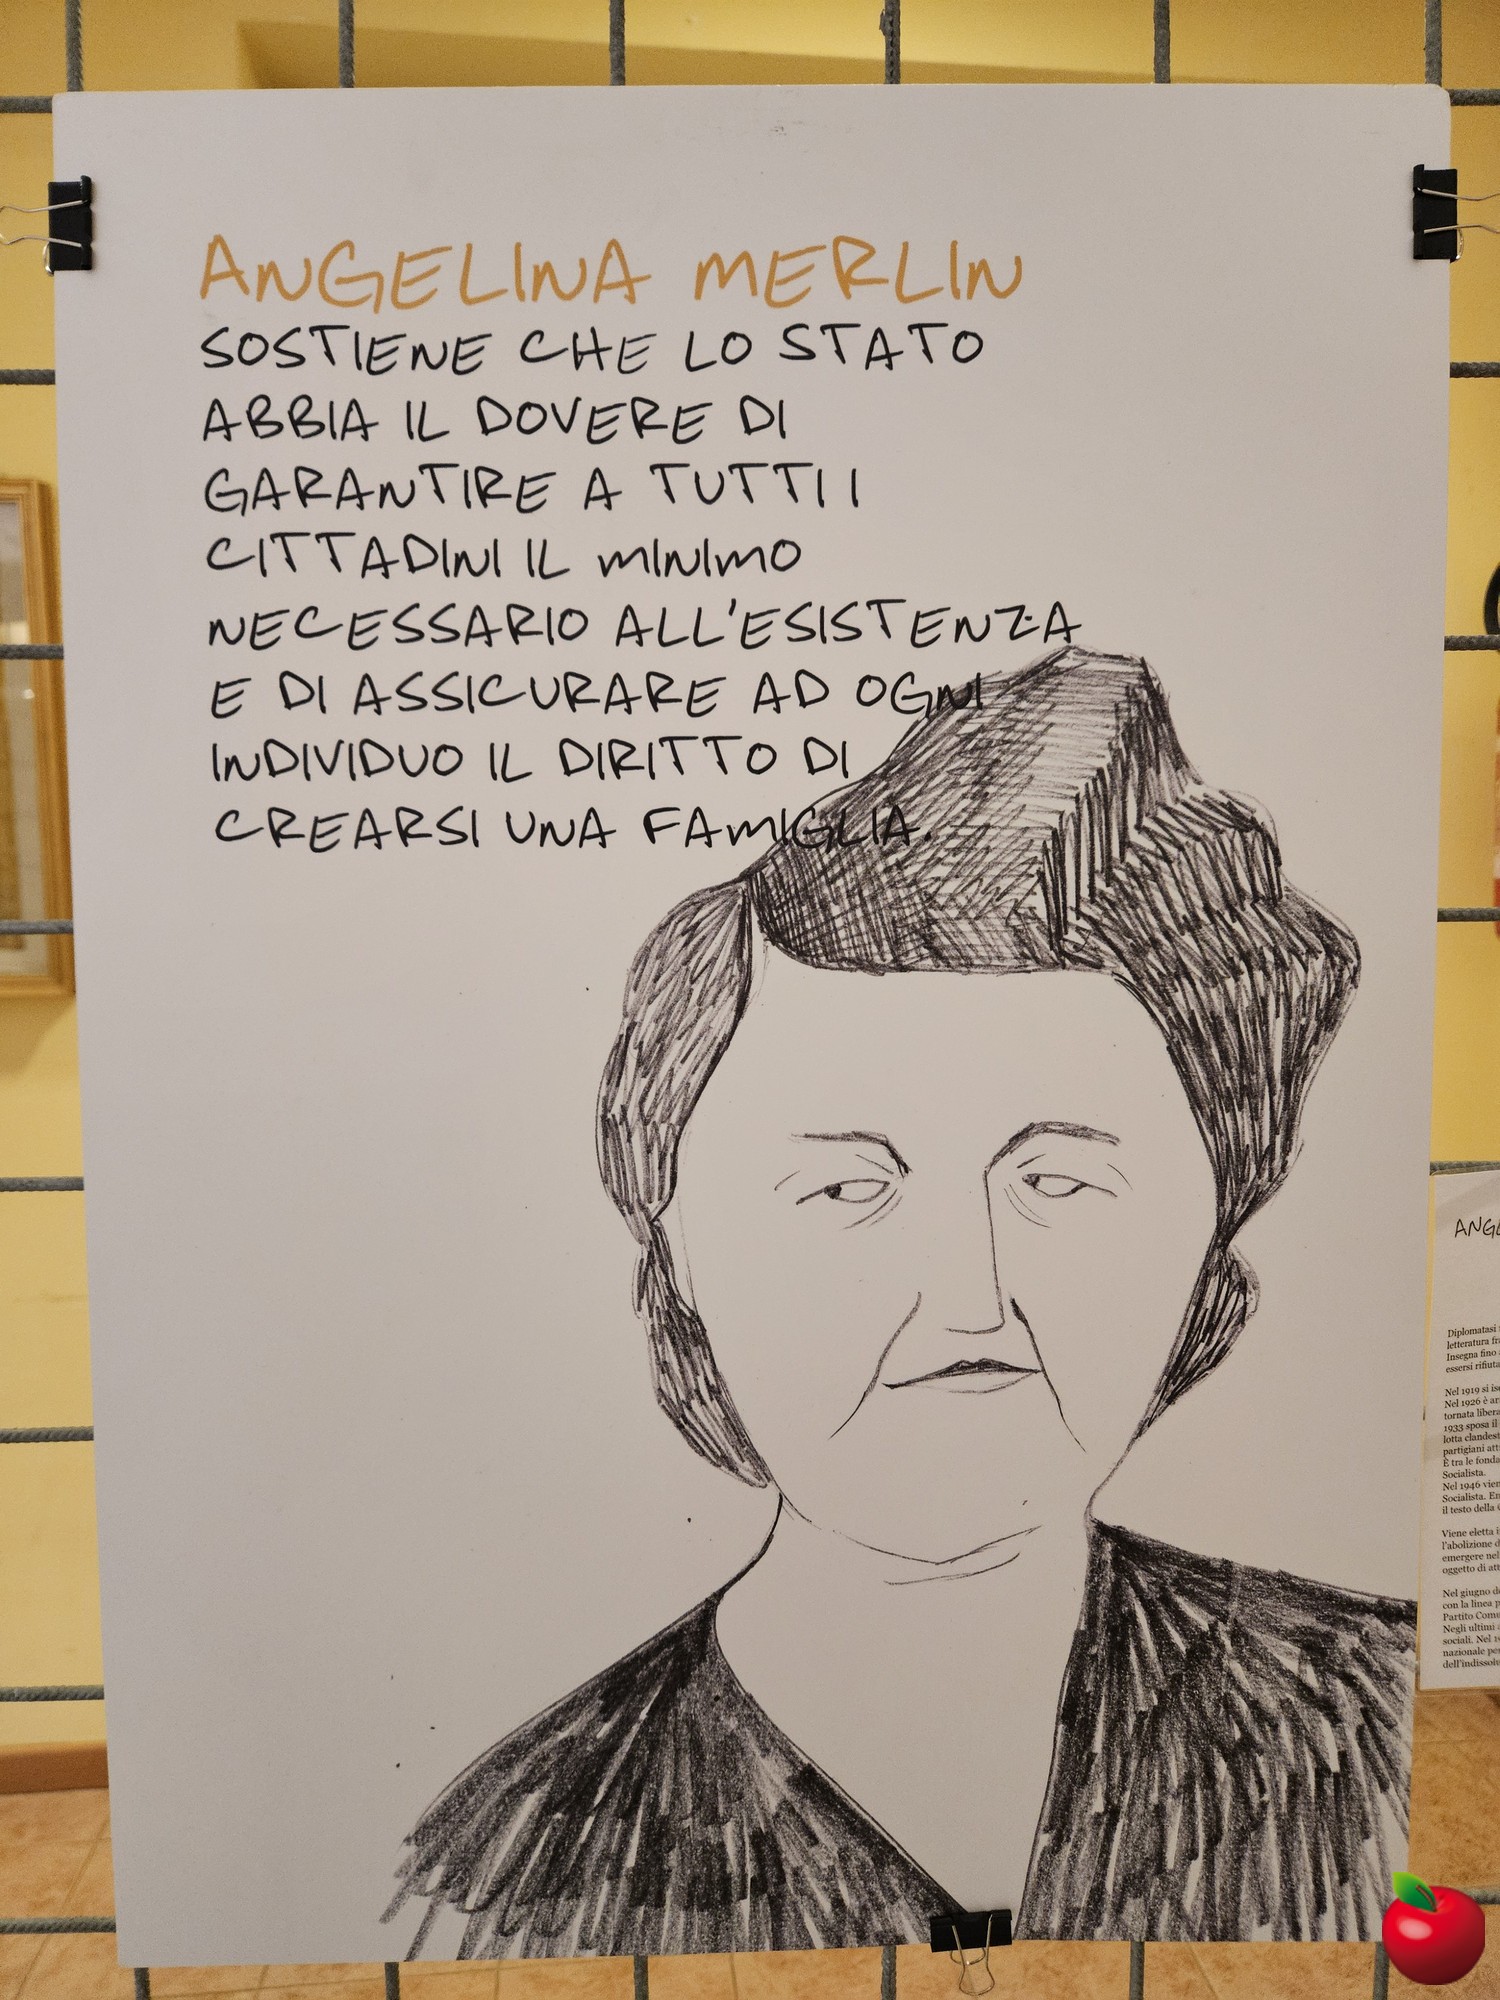 ANGELINA MERLIN
SOSTIENE CHE LO STATO
ABBIA IL DOVERE DI
GARANTIRE A TUTTI I
CITTADINI IL MINIMO
NECESSARIO ALL'ESISTENZA
E DI ASSICURARE AD OGNI
INDIVIDUO IL DIRITTO DI
CREARSI UNA FAMIGLIA.
Diplomatasi
letteratura
Insegna fino
essersi
Nel 1919 si
Nel 1926 è
tornata
1933 sposa il
lotta
partigiani
È tra le
Socialista.
Nel 1946
Socialista.
il testo della
Viene eletta
l'abolizione
emergere nel
oggetto di
Nel giugno
con la linea
Partito
Negli ultimi
sociali. Nel
nazionale